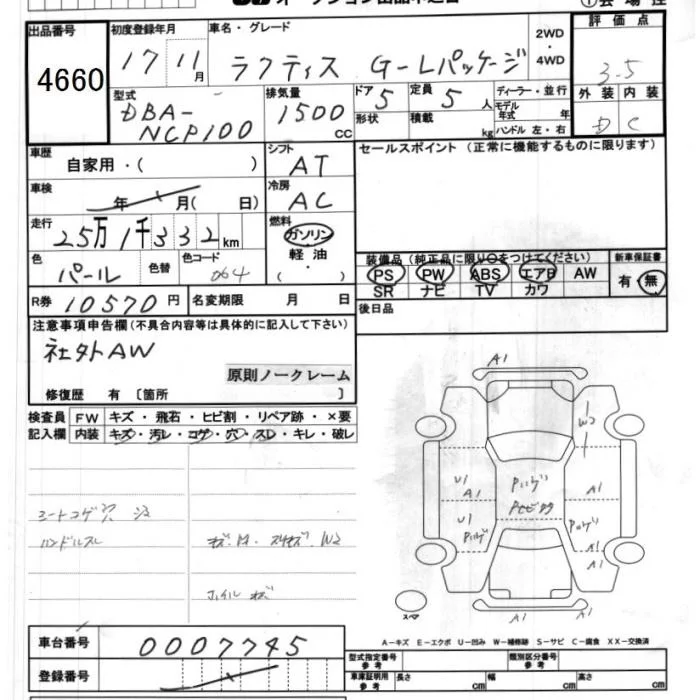 出品番号
4660
初度登録年月
17 11月
車名・グレード
ラクティス G-Lパッケージ
2WD
・
4WD
評価点
3.5
外装 内装
D C
型式
DBA-
NCP100
排気量
1500
cc
ドア 5
形状
定員 5 人
積載 kg
ディーラー・並行
モデル
年式 年
ハンドル 左・右
車歴
自家用・( )
シフト
AT
セールスポイント (正常に機能するものに限ります)
車検
年 月( 日)
冷房
AC
走行
25万1千332km
燃料
ガソリン
軽油
・
( )
色
パール
色替
色コード
064
装備品 (純正品に限り○をつけてください)
PS PW ABS エアB AW
SR ナビ TV カワ
新車保証書
有・無
R券 10570円
名変期限 月 日
後日品
注意事項申告欄(不具合内容等は具体的に記入して下さい)
社外AW
原則ノークレーム
修復歴 有 〔箇所 〕
検査員
記入欄
FW キズ・飛石・ヒビ割・リペア跡・×要
内装 キズ・汚レ・コゲ・穴・スレ・キレ・破レ
シートコゲ穴
ハンドルスレ
W2
ホイルキズ
A1
W2
U1
A1
U1
A1
A1
A1
A1
A1
A1
スペア
A-キズ E-エクボ U-凹み W-補修跡 S-サビ C-腐食 XX-交換済
車台番号
0007745
登録番号
型式指定番号
参考
類別区分番号
参考
車庫証明用
参考
長さ cm
幅 cm
高さ cm